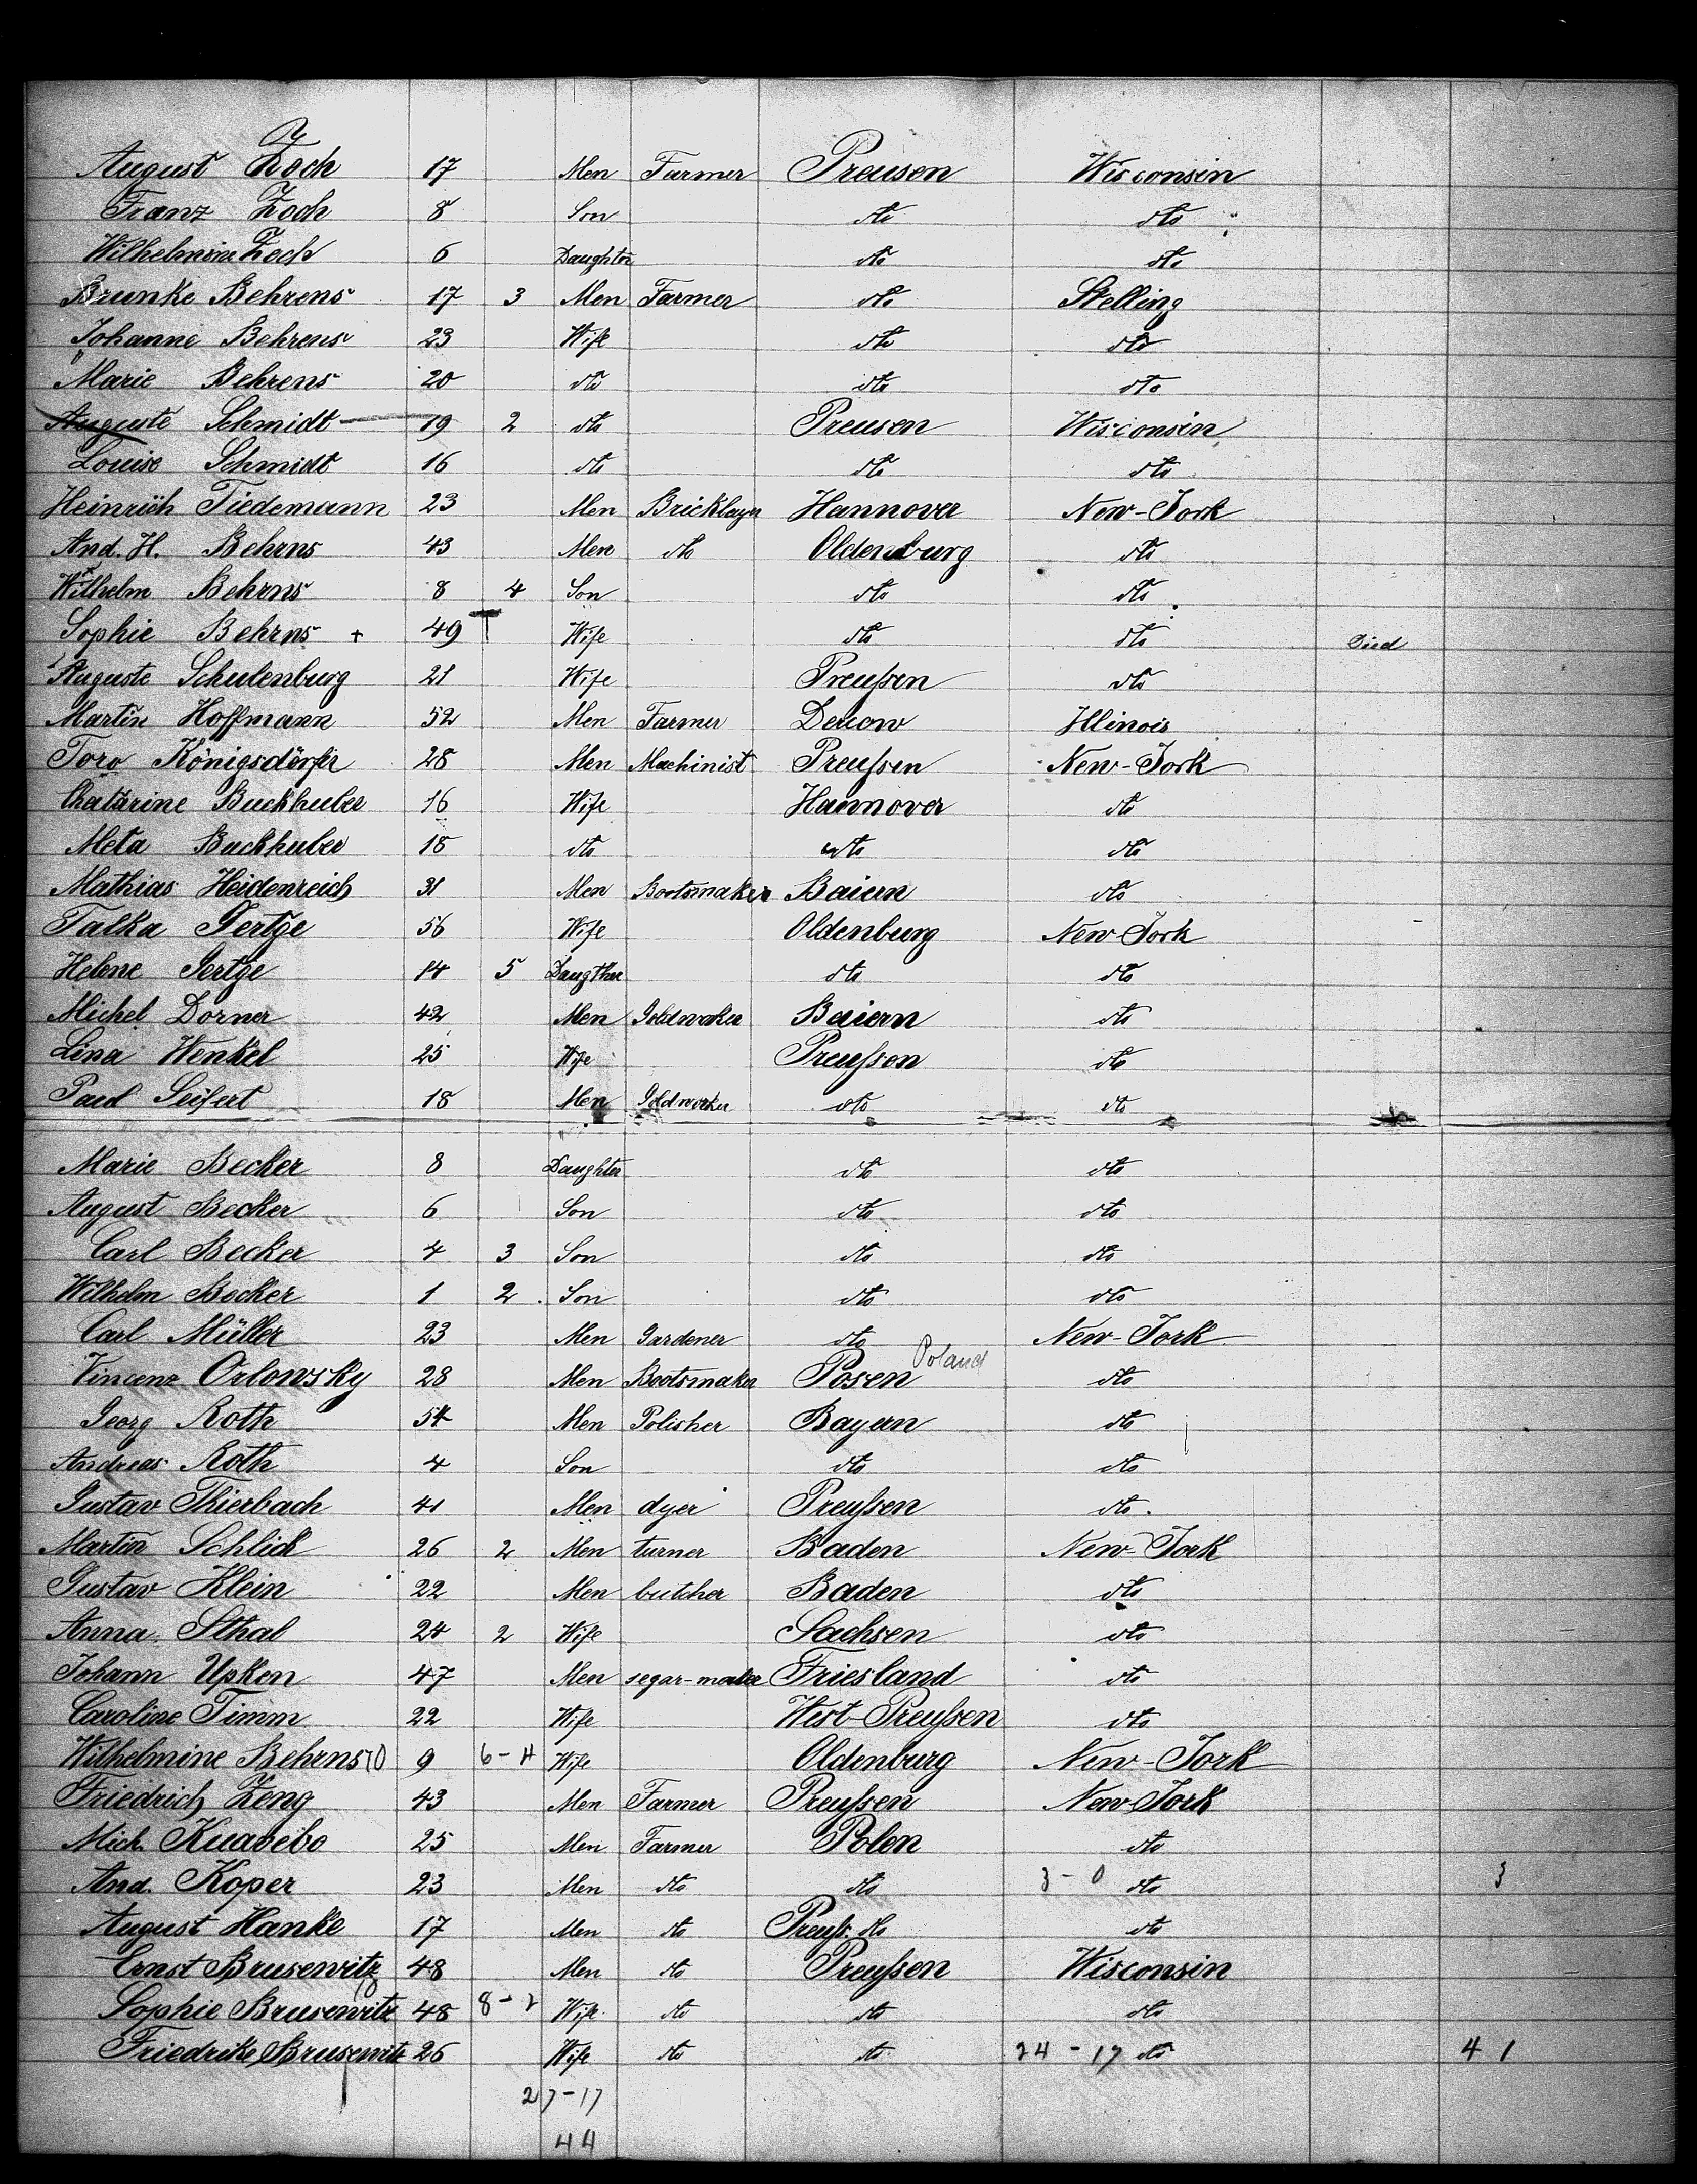 August Zoch 17 Men Farmer Preusen Wisconsin
Franz Zoch 8 Son dto dto
Wilhelmine Zoch 6 Daughter dto dto
Brunke Behrens 17 3 Men Farmer dto Stelling
Johanne Behrens 23 Wife dto dto
Marie Behrens 20 dto dto dto
Auguste Schmidt 19 2 dto Preusen Wisconsin
Louise Schmidt 16 dto dto dto
Heinrich Tiedemann 23 Men Bricklayer Hannover New-York
And. H. Behrns 43 Men dto Oldenburg dto
Wilhelm Behrns 8 4 Son dto dto
Sophie Behrns + 49 Wife dto dto Died
Auguste Schulenburg 21 Wife Preußen dto
Martin Hoffmann 52 Men Farmer Illinois
Königsdörfer 28 Men Machinist Preußen New-York
Chatarine Buckhuber 16 Wife Hannover dto
Meta Buckhuber 18 dto dto dto
Mathias Heidenreich 31 Men Bootsmaker Baiern dto
Talka Gertge 56 Wife Oldenburg New-York
Helene Gertge 14 5 Daugther dto dto
Michel Dorner 42 Men Goldworker Baiern dto
Lina Wenkel 25 Wife Preußen dto
Paul Seifert 18 Men Goldworker dto dto
Marie Becker 8 Daughter dto dto
August Becker 6 Son dto dto
Carl Becker 4 3 Son dto dto
Wilhelm Becker 1 2 Son dto dto
Carl Müller 23 Men Gardener dto New-York
Vincenz Orlowsky 28 Men Bootsmaker Posen Poland dto
Georg Roth 54 Men Polisher Bayern dto
Andreas Roth 4 Son dto dto
Gustav Thierbach 41 Men dyer Preußen dto
Martin Schlick 26 2 Men turner Baden New-York
Gustav Klein 22 Men butcher Baden dto
Anna Sthal 24 2 Wife Sachsen dto
Johann Upken 47 Men segar-maker Friesland dto
Caroline Timm 22 Wife West-Preußen dto
Wilhelmine Behrns 10 9 6-4 Wife Oldenburg New-York
Friedrich Zeng 43 Men Farmer Preußen New-York
Mich. 25 Men Farmer Polen dto
And. Koper 23 Men dto dto 3-0 dto 3
August Hanke 17 Men dto Preuß. dto dto
Ernst Brusewitz 48 Men dto Preußen Wisconsin
Sophie Brusewitz 48 8-2 Wife dto dto dto
Friedrike Brusewitz 26 Wife dto dto 24-17 dto 41
27-17
44